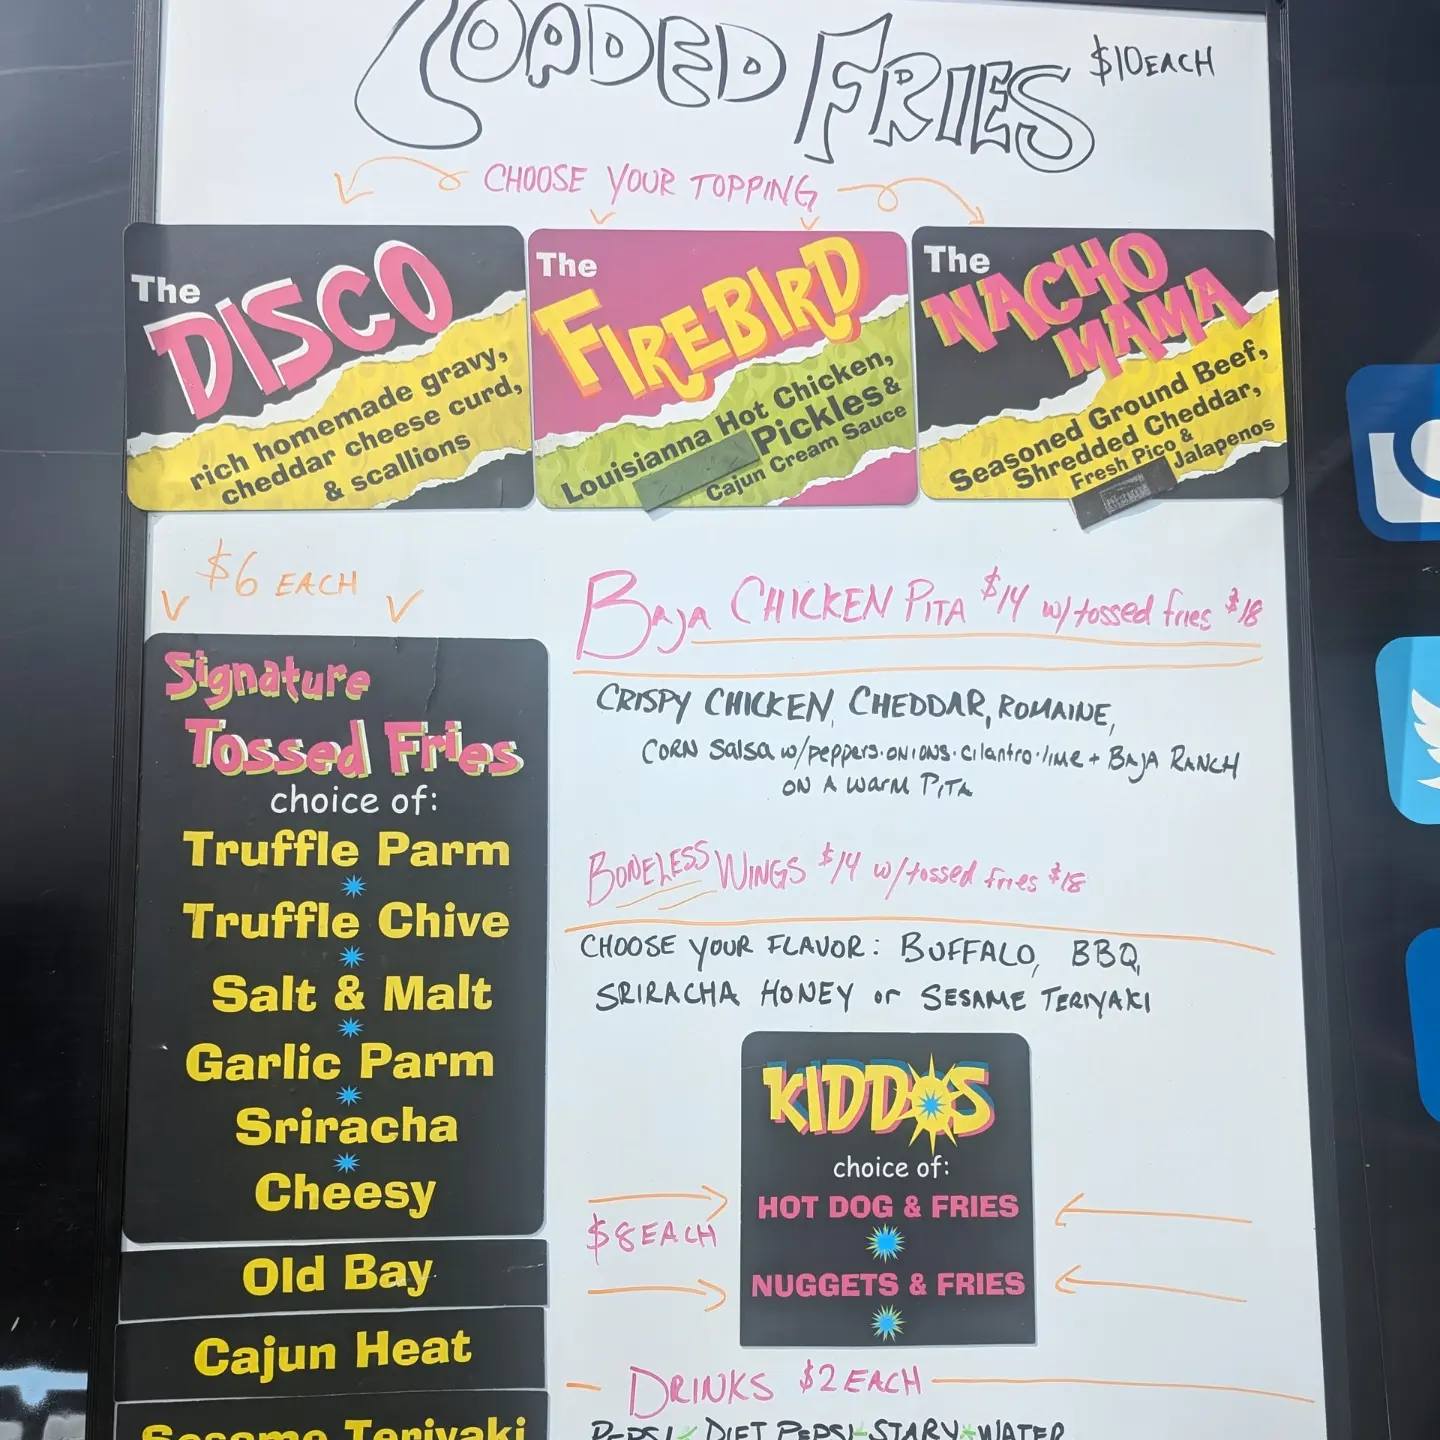 LOADED FRIES $10 EACH
CHOOSE YOUR TOPPING
The
DISCO
rich homemade gravy,
cheddar cheese curd,
& scallions
The
FIREBIRD
Louisianna Hot Chicken,
Pickles &
Cajun Cream Sauce
The
NACHO
MAMA
Seasoned Ground Beef,
Shredded Cheddar,
Fresh Pico &
Jalapenos
$6 EACH
Signature
Tossed Fries
choice of:
Truffle Parm
Truffle Chive
Salt & Malt
Garlic Parm
Sriracha
Cheesy
Old Bay
Cajun Heat
Sesame Teriyaki
BAJA CHICKEN PITA $14 w/tossed fries $18
CRISPY CHICKEN, CHEDDAR, ROMAINE,
CORN SALSA w/peppers·onions·cilantro·lime + BAJA RANCH
ON A WARM PITA
BONELESS WINGS $14 w/tossed fries $18
CHOOSE YOUR FLAVOR: BUFFALO, BBQ,
SRIRACHA HONEY or SESAME TERIYAKI
KIDDOS
choice of:
HOT DOG & FRIES
$8 EACH
NUGGETS & FRIES
DRINKS $2 EACH
PEPSI DIET PEPSI STARY WATER